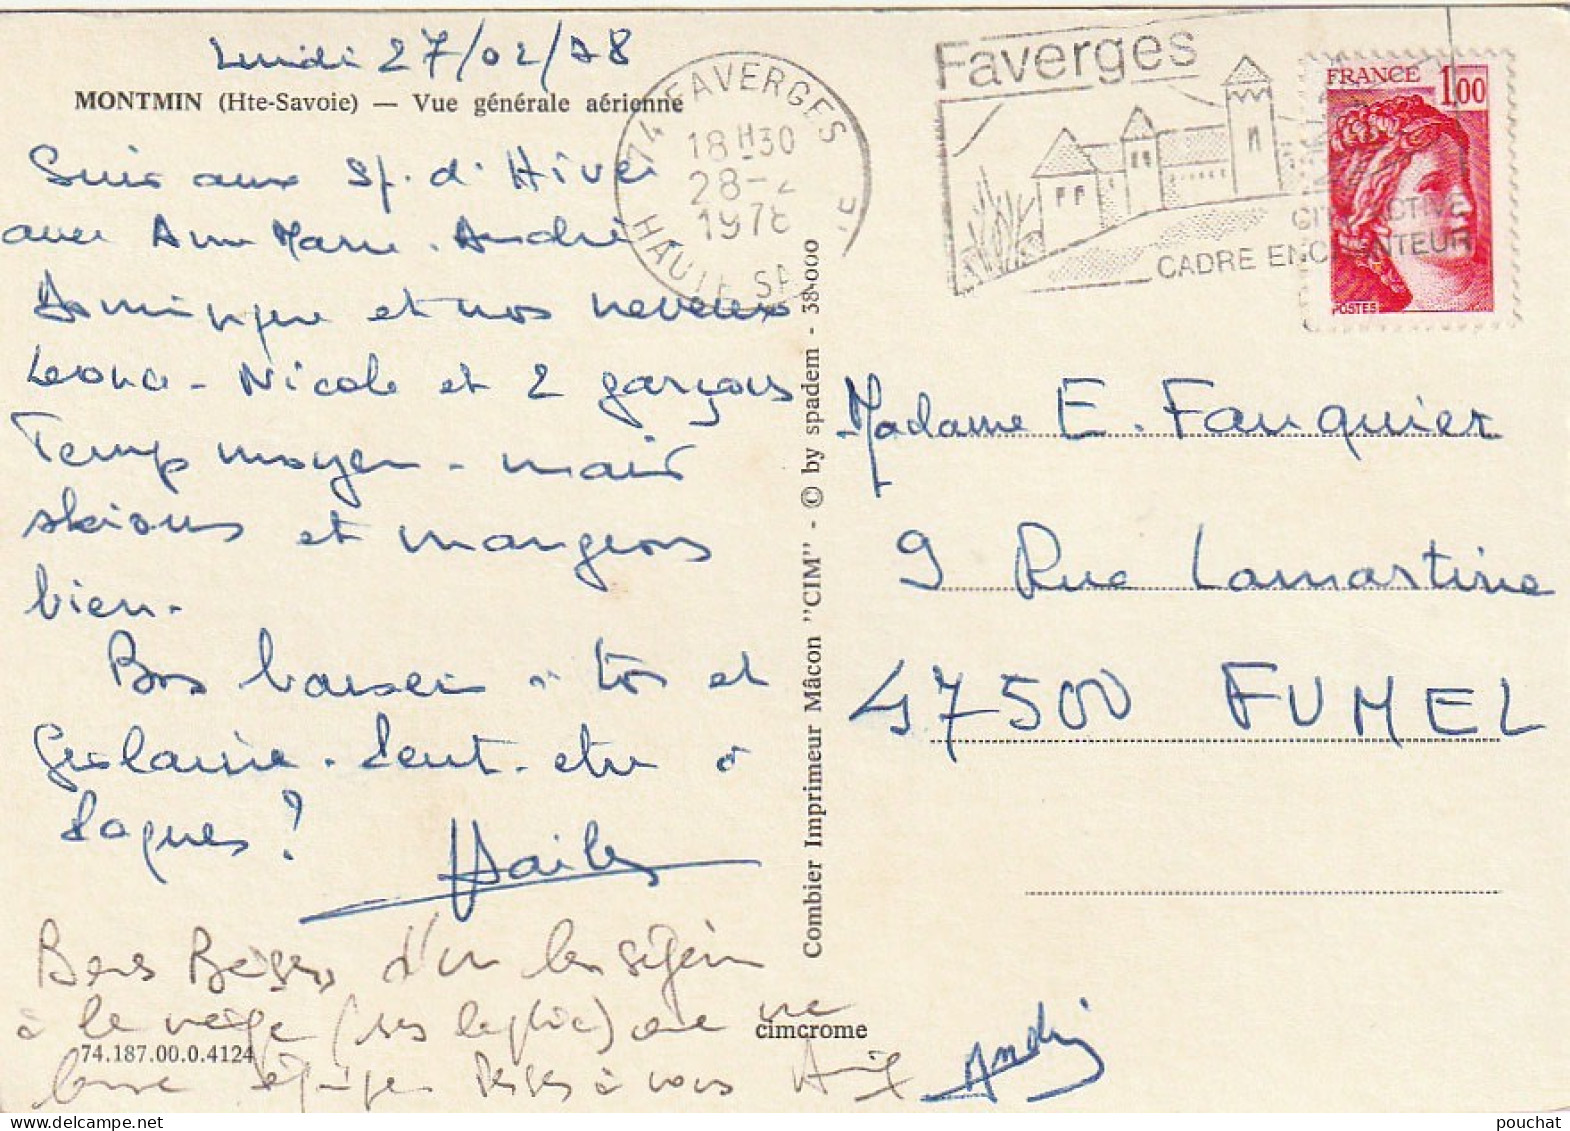 Lundi 27/02/78
MONTMIN (Hte-Savoie) — Vue générale aérienne
Suis aux Sp. d'Hiver
avec Ann Marie. André
Dominique et nos neveux
Leonce - Nicole et 2 garçons
Temp moyen - mais
skions et mangeons
bien.
Bos baiser à tos et
Gislaine. Peut-etre à
Paques ?
Bons Baisers d'un
à la neige
à vous
74.187.00.0.4124
cimcrome
André
Combier Imprimeur Mâcon "CIM" - © by spadem - 38.000
74 FAVERGES
18H30
28-2
1978
HAUTE SA
Faverges
CITE ACTIVE
CADRE ENCHANTEUR
FRANCE 1,00
POSTES
Madame E. Fauquier
9 Rue Lamartine
47500 FUMEL
pouchat